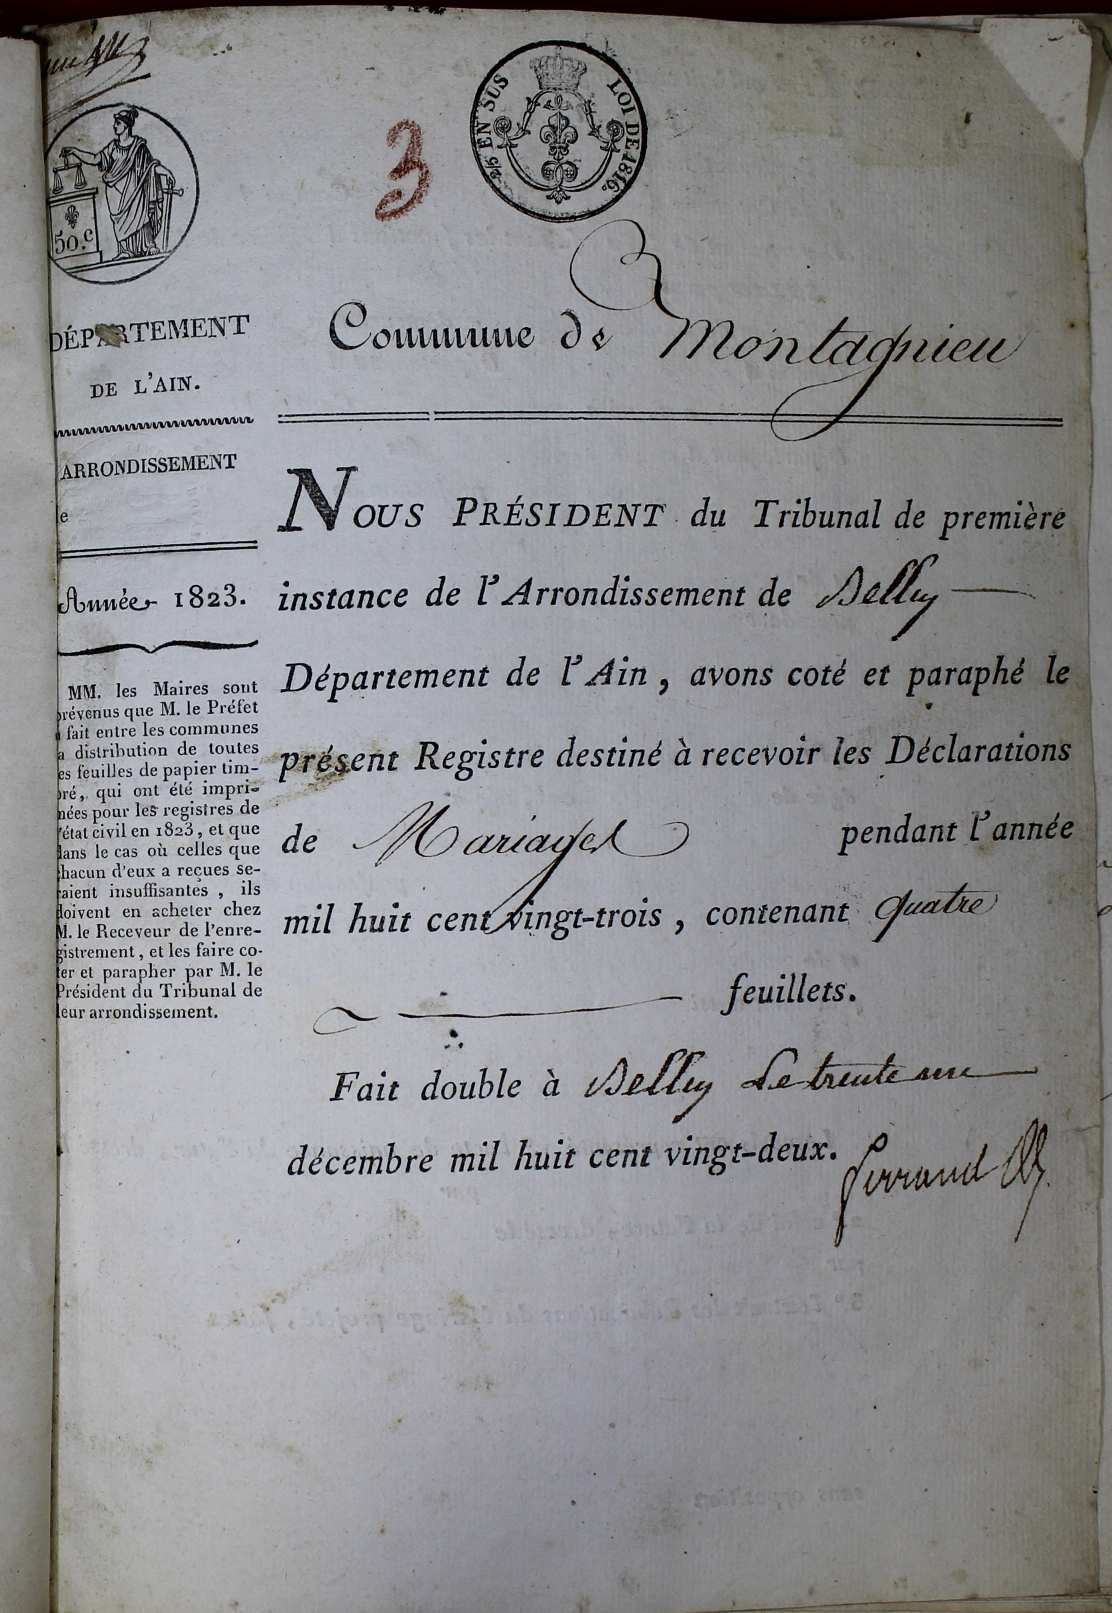 3
2/5 EN SUS LOI DE 1816.
50.c
DÉPARTEMENT
DE L'AIN.
ARRONDISSEMENT
e
Année 1823.
MM. les Maires sont
prévenus que M. le Préfet
a fait entre les communes
la distribution de toutes
les feuilles de papier tim-
bré, qui ont été impri-
mées pour les registres de
l'état civil en 1823, et que
dans le cas où celles que
chacun d'eux a reçues se-
raient insuffisantes, ils
doivent en acheter chez
M. le Receveur de l'enre-
gistrement, et les faire co-
ter et parapher par M. le
Président du Tribunal de
leur arrondissement.
Commune de Montagnieu
NOUS PRÉSIDENT du Tribunal de première
instance de l'Arrondissement de Belley
Département de l'Ain, avons coté et paraphé le
présent Registre destiné à recevoir les Déclarations
de Mariages pendant l'année
mil huit cent vingt-trois, contenant quatre
feuillets.
Fait double à Belley Le trente un
décembre mil huit cent vingt-deux.